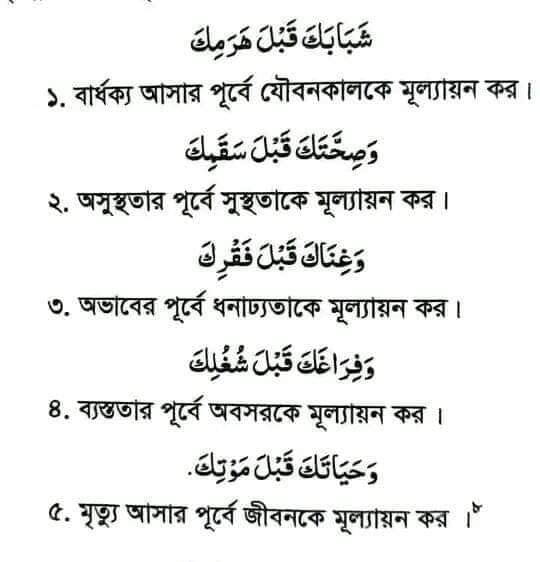 شَبَابَكَ قَبْلَ هَرَمِكَ
১. বার্ধক্য আসার পূর্বে যৌবনকালকে মূল্যায়ন কর।
وَصِحَّتَكَ قَبْلَ سَقَمِكَ
২. অসুস্থতার পূর্বে সুস্থতাকে মূল্যায়ন কর।
وَغِنَاكَ قَبْلَ فَقْرِكَ
৩. অভাবের পূর্বে ধনাঢ্যতাকে মূল্যায়ন কর।
وَفِرَاغَكَ قَبْلَ شُغُلِكَ
৪. ব্যস্ততার পূর্বে অবসরকে মূল্যায়ন কর ।
وَحَيَاتَكَ قَبْلَ مَوْتِكَ.
৫. মৃত্যু আসার পূর্বে জীবনকে মূল্যায়ন কর ।৮